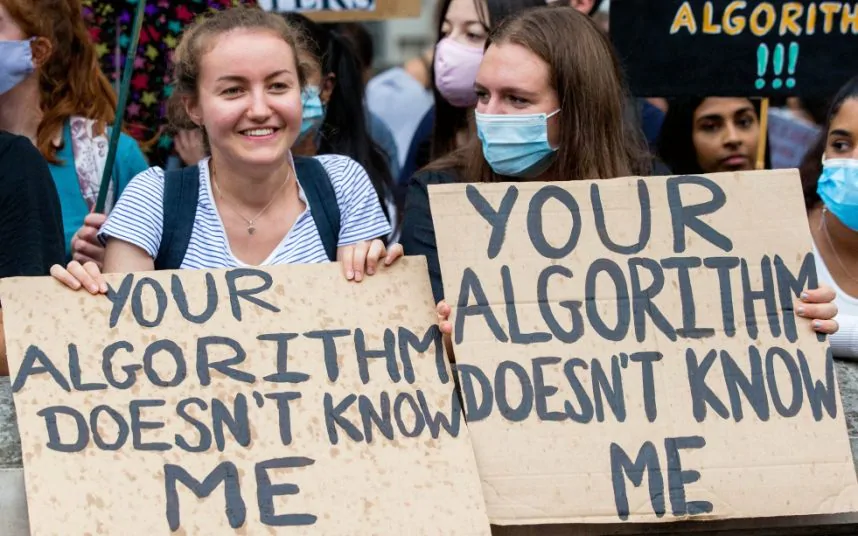 ALGORITH
!!!
YOUR
ALGORITHM
DOESN'T KNOW
ME
YOUR
ALGORITHM
DOESN'T KNOW
ME